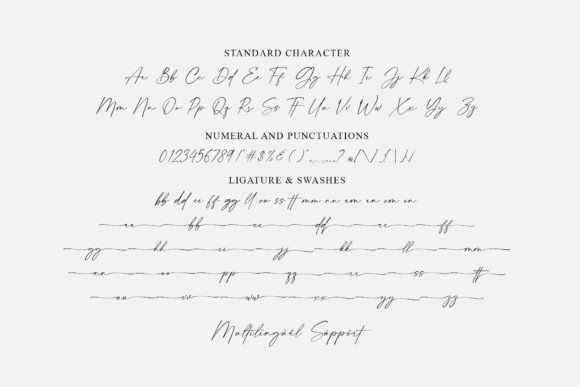 STANDARD CHARACTER
Aa Bb Cc Dd Ee Ff Gg Hh Ii Jj Kk Ll
Mm Nn Oo Pp Qq Rr Ss Tt Uu Vv Ww Xx Yy Zz
NUMERAL AND PUNCTUATIONS
0123456789 # $ % & ( )
LIGATURE & SWASHES
bb dd ee ff gg ll oo ss tt mm nn am an om on
aa bb cc dd ee ff
gg hh ii jj kk ll mm
nn oo pp qq rr ss tt
uu vv ww xx yy zz
Multilingüäl Säppört